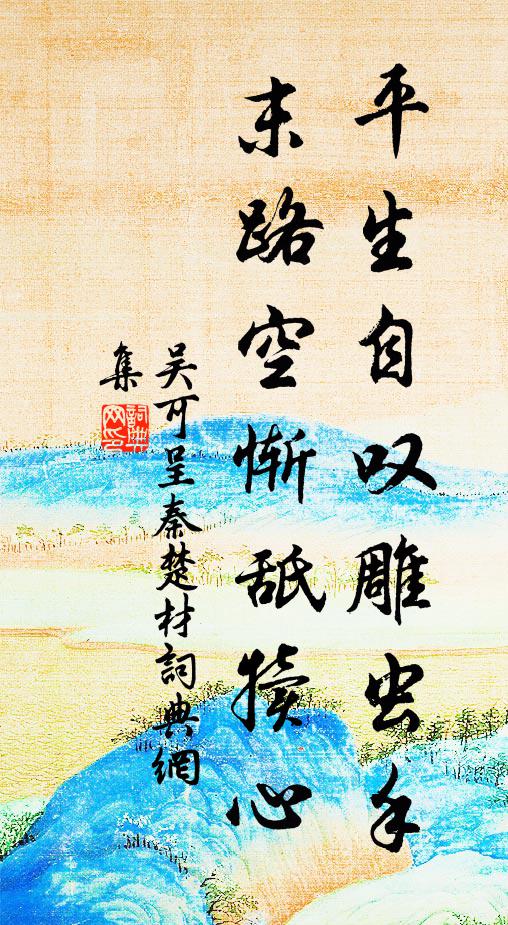 平生自叹雕虫手
末路空惭舐犊心
吴可呈秦楚材詞典網
集
詞典网印